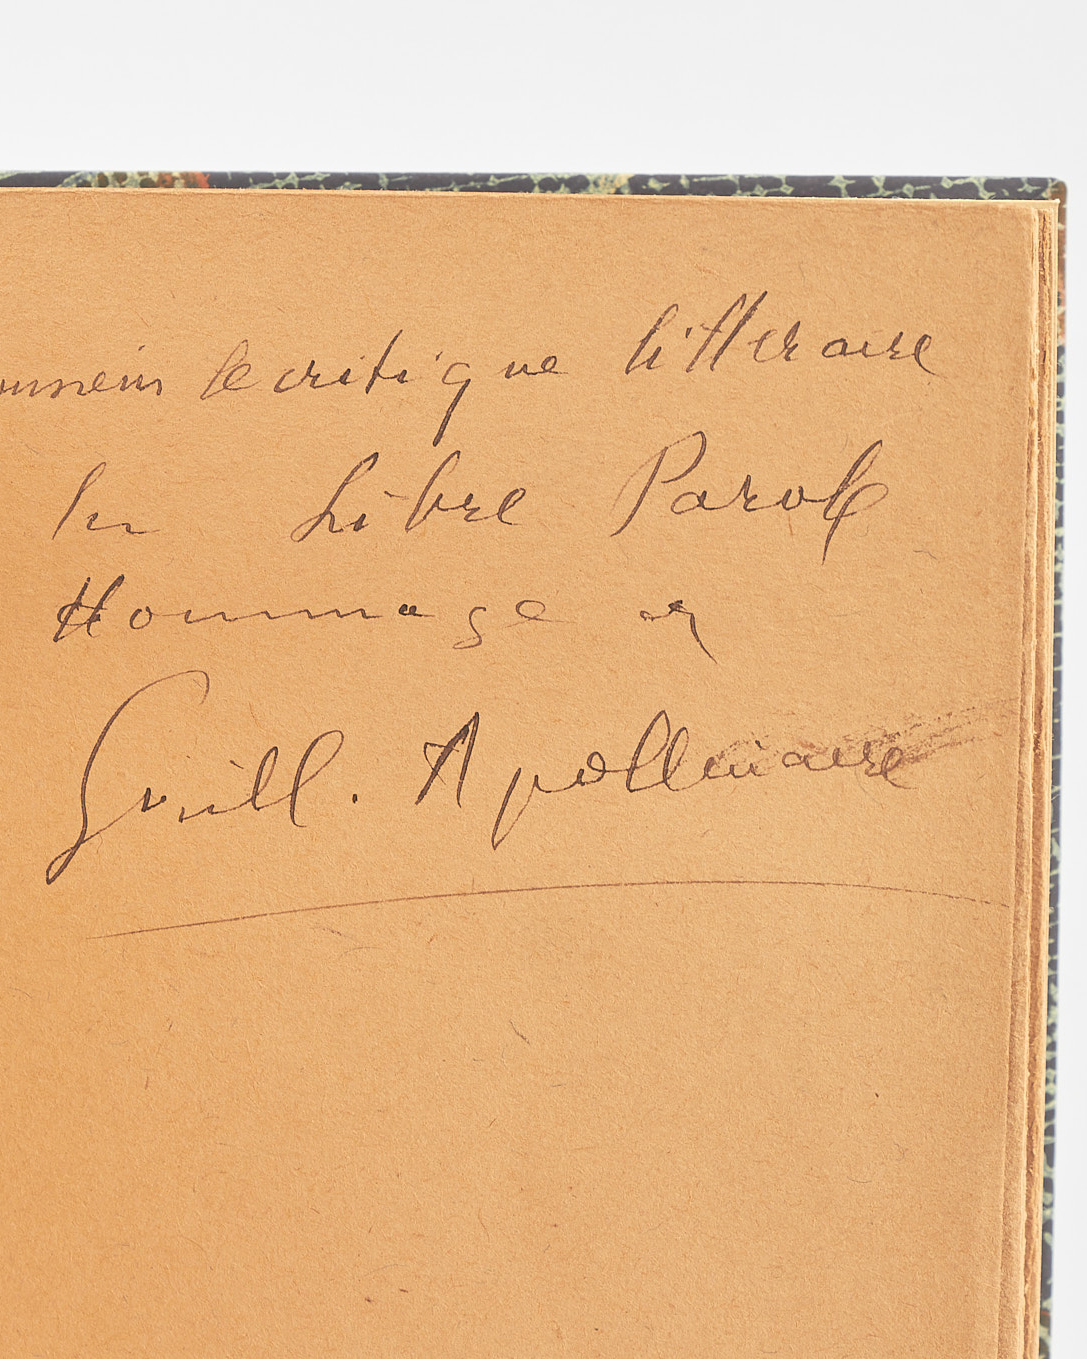 monsieur le critique littéraire
La Libre Parole
Hommage de
Guill. Apollinaire